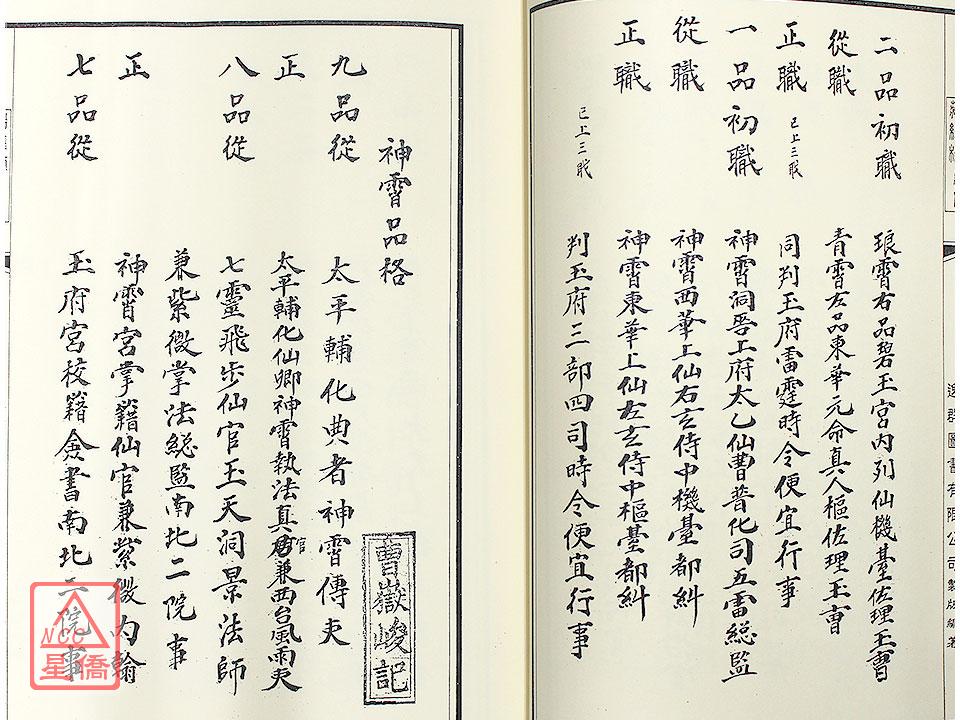 二品初職　琅霄右品碧玉宮內列仙機臺佐理玉曹
從職　青霄左品東華元命真人樞佐理玉曹
正職　已上三職　同判玉府雷霆時令便宜行事
一品初職　神霄洞吞上府太乙仙曹普化司五雷総監
從職　神霄西華上仙右玄侍中機臺都糾
正職　神霄東華上仙左玄侍中樞臺都糾
已上三職　判玉府三部四司時令便宜行事
逸群圖書有限公司製版編著
神霄品格
曹嶽峻記
九品從　太平輔化典者神霄傳吏
正　太平輔化仙卿神霄執法真官兼西台風雨吏
八品從　七靈飛步仙官玉天洞景法師
兼紫微掌法総監南北二院事
正　神霄宮掌籍仙官兼紫微內翰
七品從　玉府宮校籍僉書南北二院事
NCC
星僑